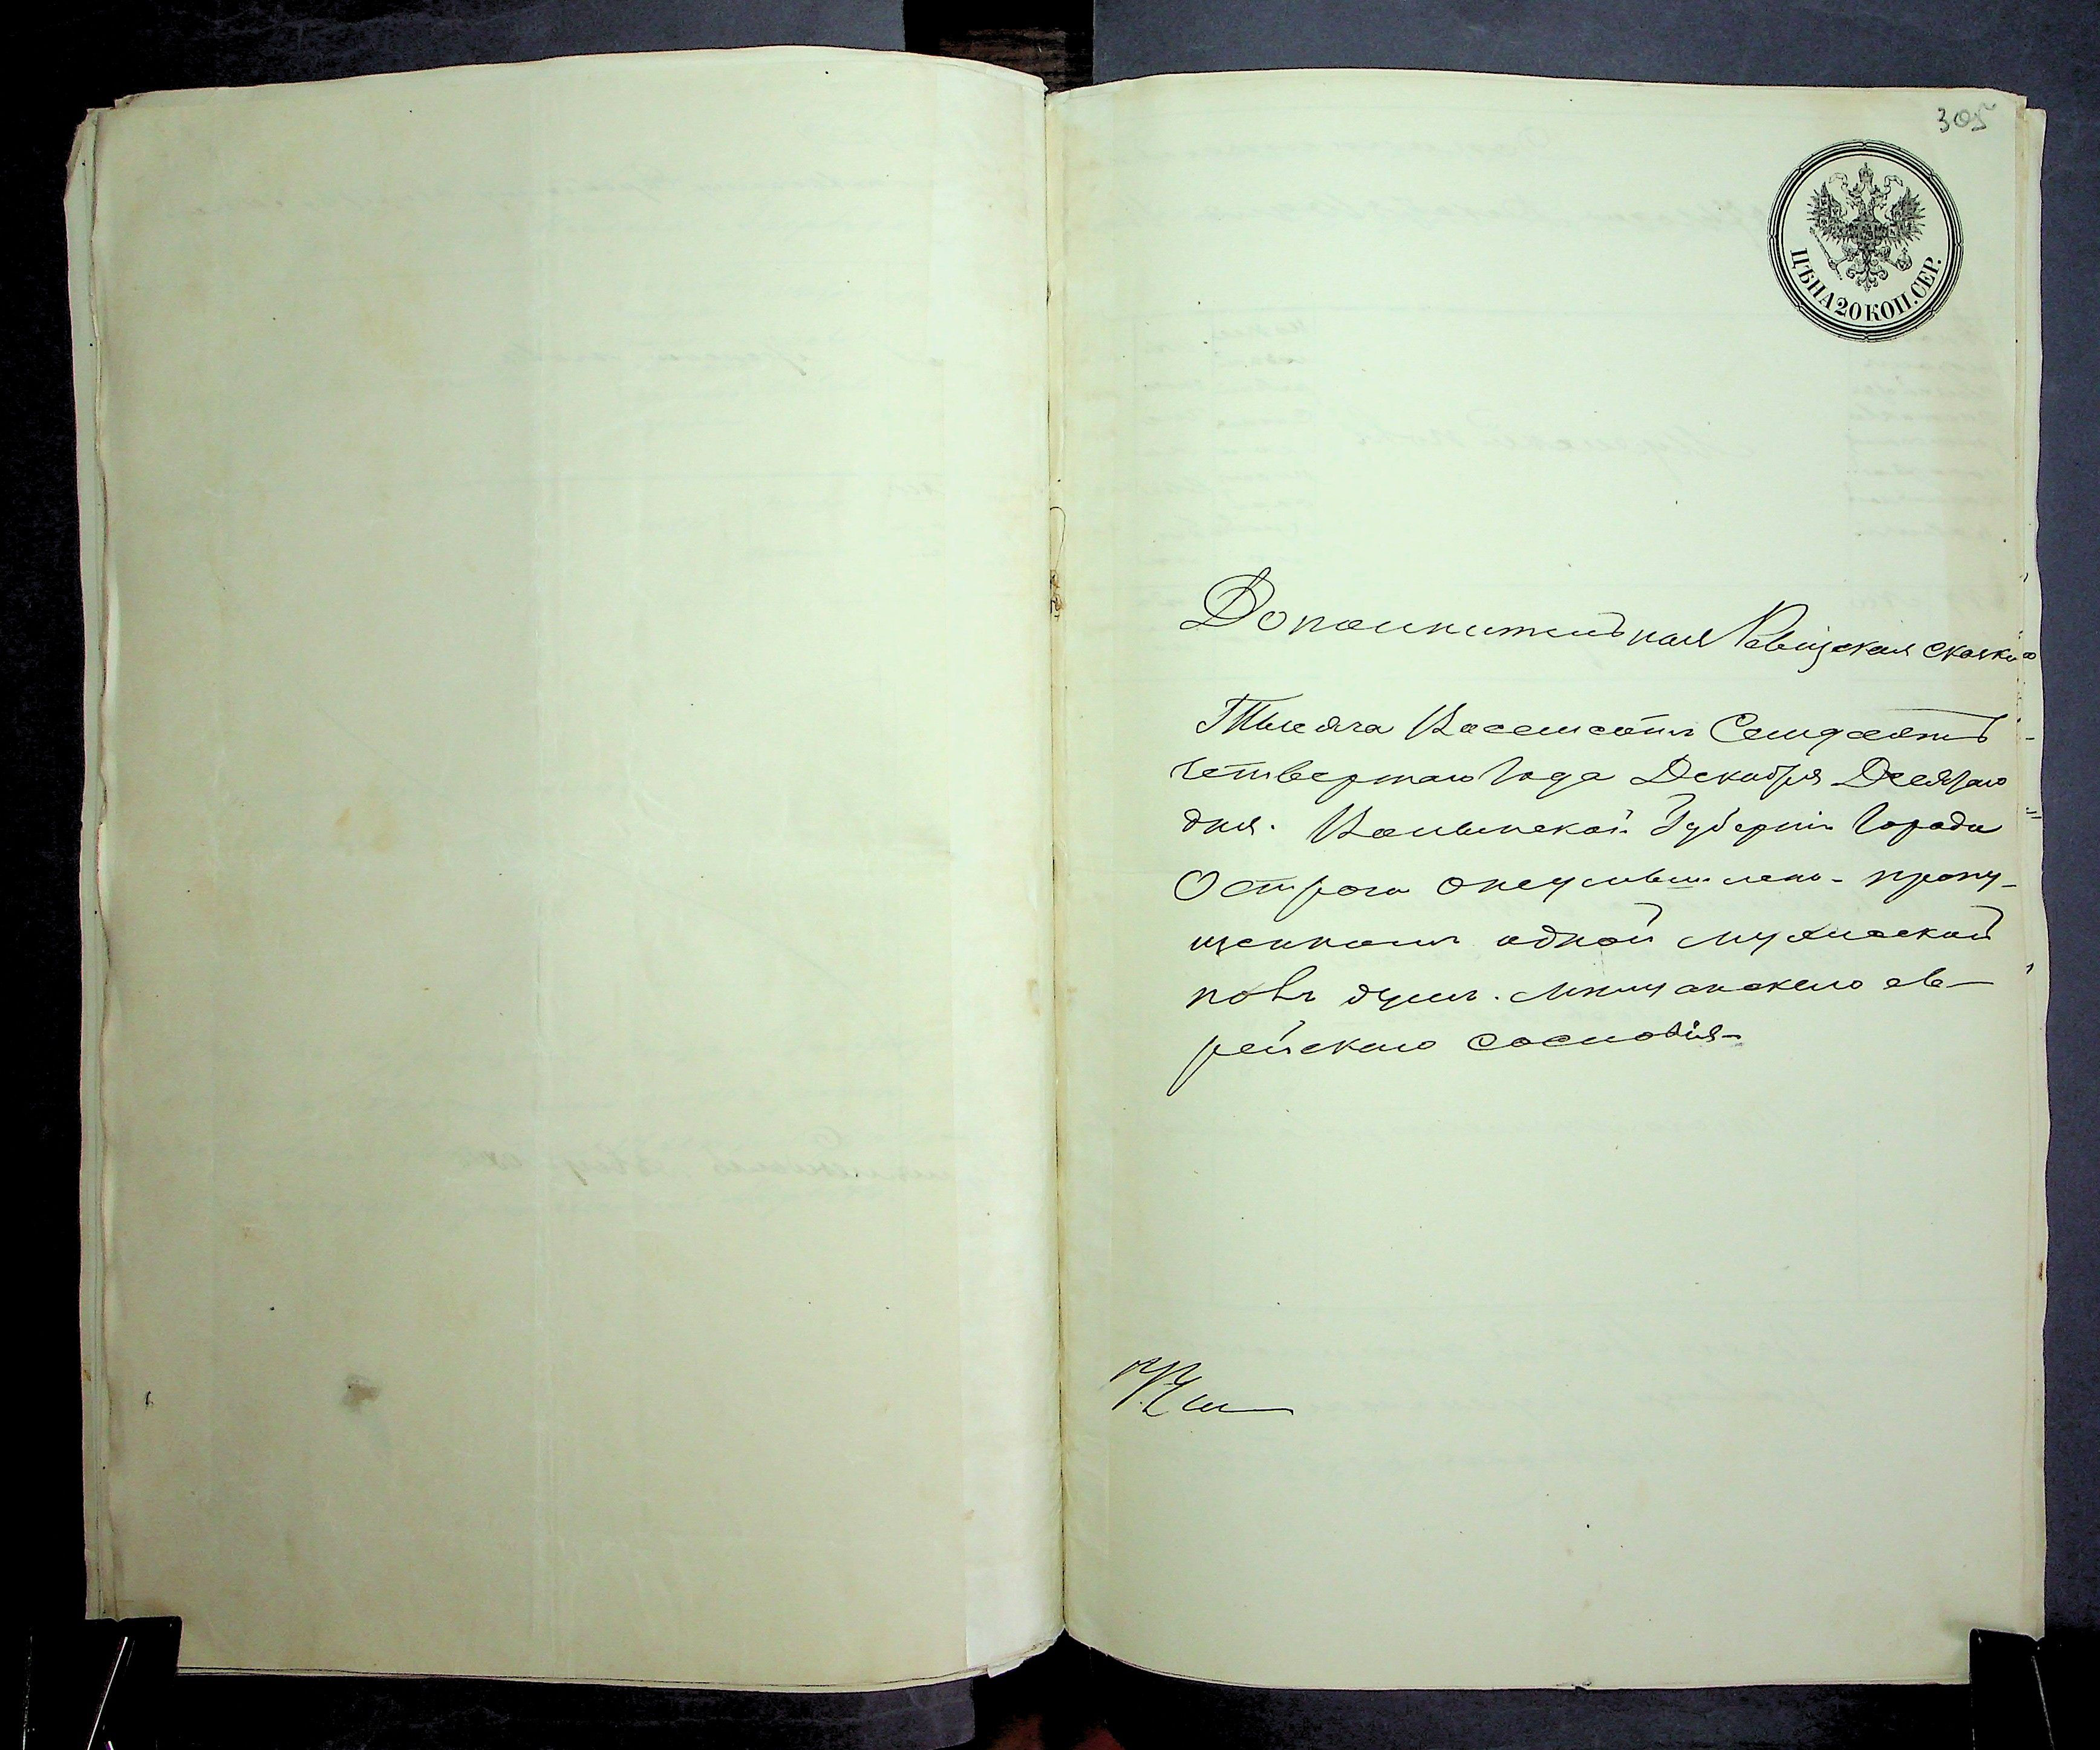 305
ЦѢНА 20 КОП. СЕР.
Дополнительная Ревизская сказка
Тысяча Восемсотъ Семдесятъ
четвертаго Года Декабря
дня. Волынской Губерніи Города
Острога о неумышленно- пропу-
щенной одной мужеской
пола души. мѣщанскаго ев-
рейскаго сословія-